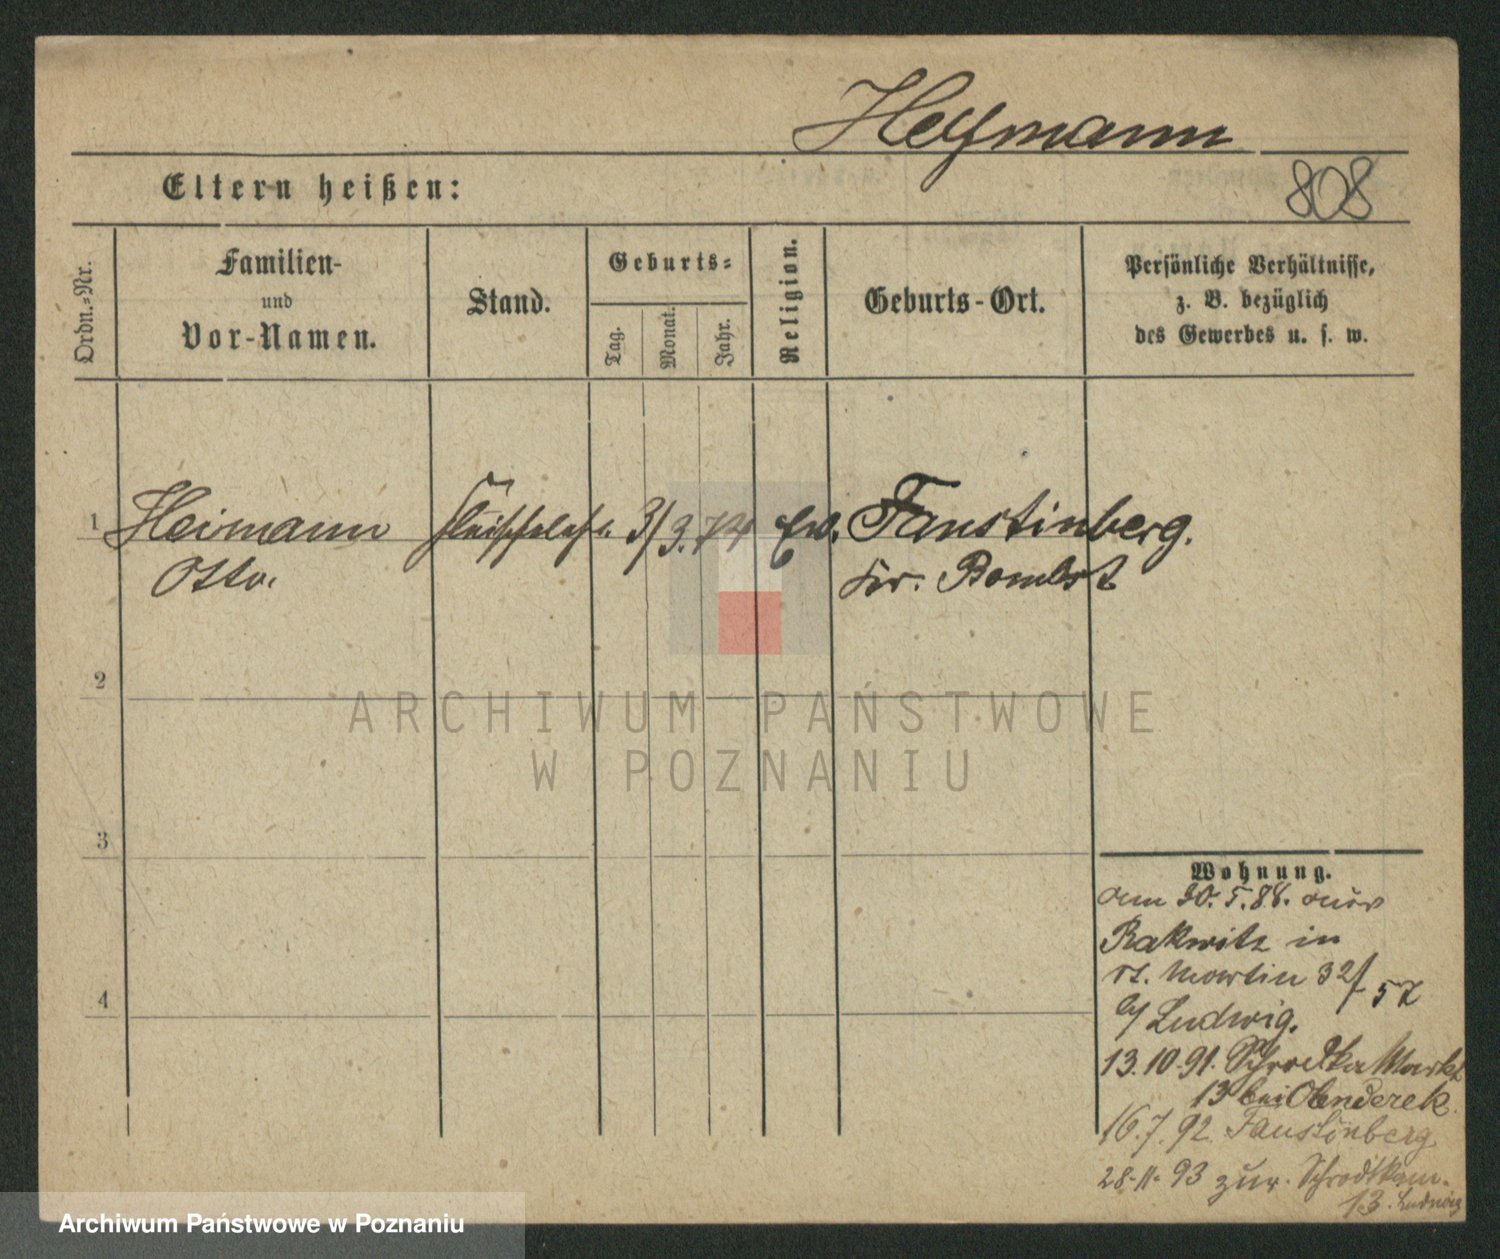 Heymann
Eltern heißen:
808
Ordn.=Nr.
Familien-
und
Vor-Namen.
Stand.
Geburts=
Tag.
Monat.
Jahr.
Religion.
Geburts-Ort.
Persönliche Verhältnisse,
z. B. bezüglich
des Gewerbes u. s. w.
1 Heimann 3/3. 74 Faustinberg.
Otto. Kr. Bomst
2
ARCHIWUM PAŃSTWOWE
W POZNANIU
3
Wohnung.
am 30. 5. 88. aus
Rakwitz in
St. Martin 32/57
b/ Ludwig.
4
13.10.91. Schrodka Markt
13 bei
16.7.92 Faustinberg
28-11-93 zur. Schrodkam.
13. Ludwig
Archiwum Państwowe w Poznaniu